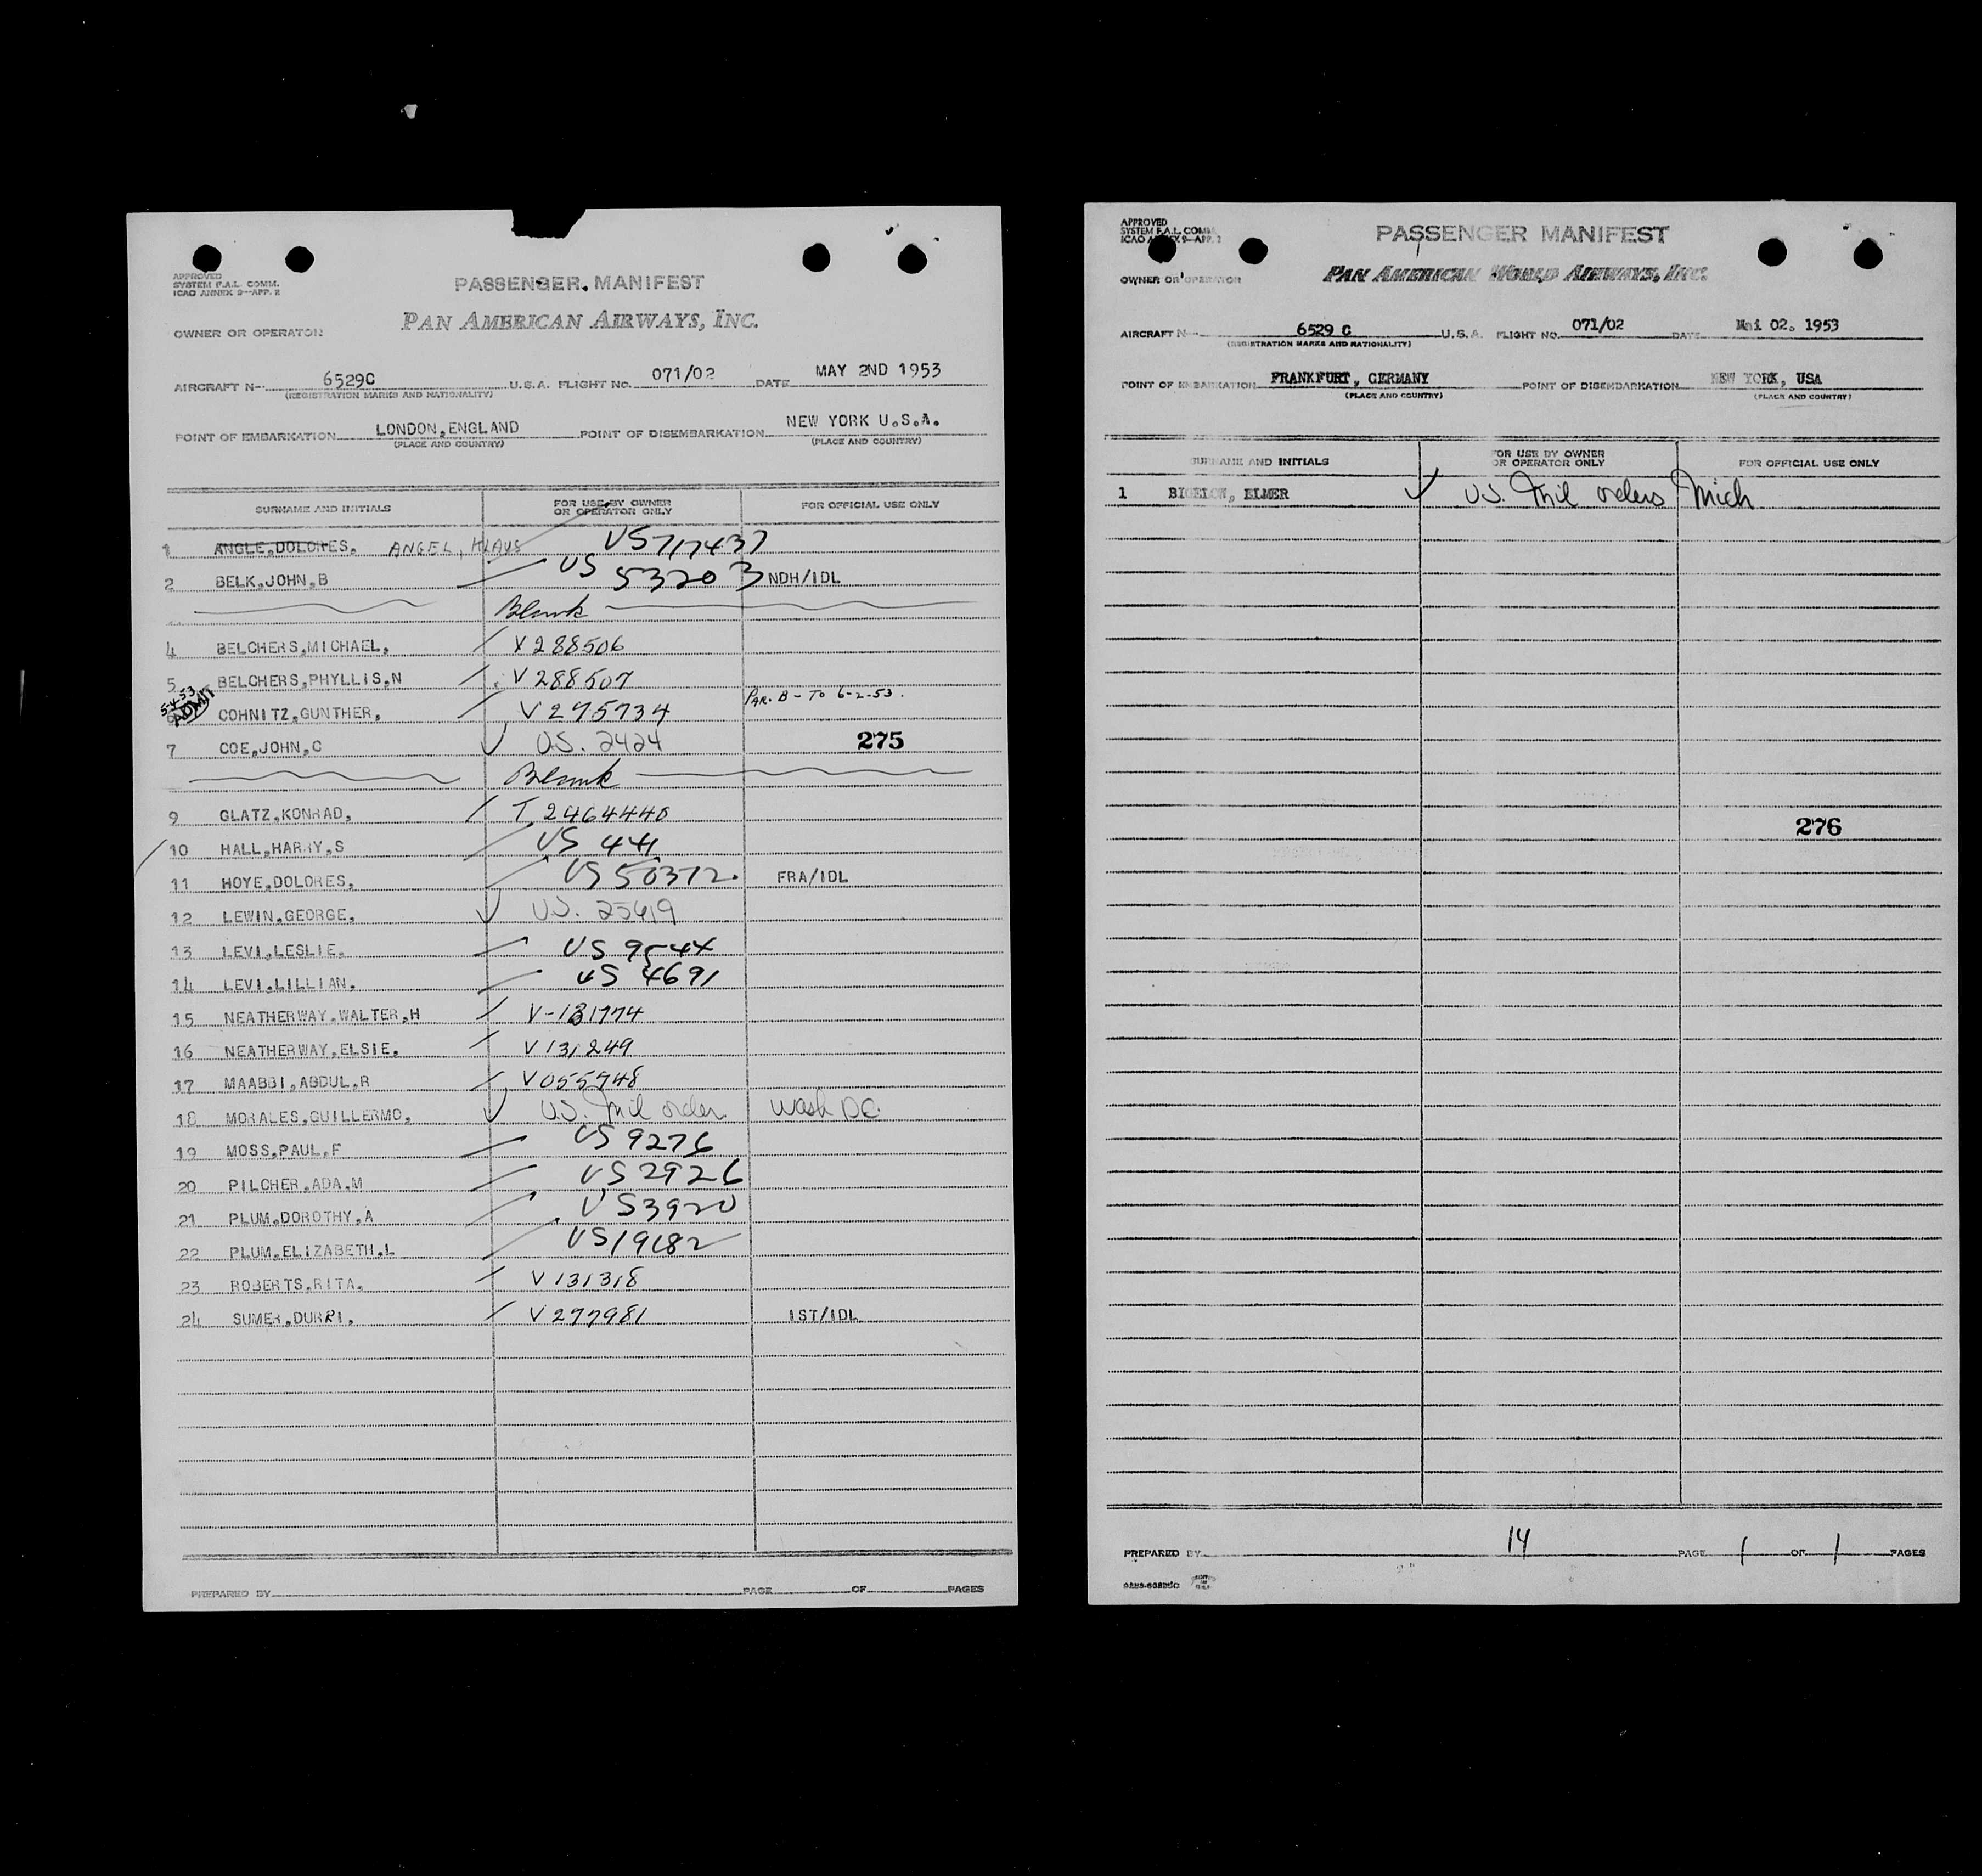 APPROVED
SYSTEM F.A.L. COMM.
ICAO ANNEX 9-APP. 2
PASSENGER MANIFEST
OWNER OR OPERATOR
PAN AMERICAN AIRWAYS, INC.
AIRCRAFT N- 6529C U.S.A. FLIGHT NO. 071/02 DATE MAY 2ND 1953
(REGISTRATION MARKS AND NATIONALITY)
POINT OF EMBARKATION LONDON,ENGLAND POINT OF DISEMBARKATION NEW YORK U.S.A.
(PLACE AND COUNTRY) (PLACE AND COUNTRY)
SURNAME AND INITIALS FOR USE BY OWNER OR OPERATOR ONLY FOR OFFICIAL USE ONLY
1 ANGLE,DOLORES, ANGEL, KLAUS US717437
2 BELK,JOHN,B US 53203 NDH/IDL
Blank
4 BELCHERS,MICHAEL, V288506
5 BELCHERS,PHYLLIS,N V288507
5-4-53 ADMIT COHNITZ,GUNTHER, V275734 PAR. B - TO 6-2-53.
7 COE,JOHN,C U.S. 2424 275
Blank
9 GLATZ,KONRAD, T 2464440
10 HALL,HARRY,S US 441
11 HOYE,DOLORES, US 50372. FRA/IDL
12 LEWIN,GEORGE, U.S. 25419
13 LEVI,LESLIE, US 9544
14 LEVI,LILLIAN, US 4691
15 NEATHERWAY,WALTER,H V-131774
16 NEATHERWAY,ELSIE, V131249
17 MAABBI,ABDUL,R V055748
18 MORALES,GUILLERMO, U.S. Mil order. Wash DC.
19 MOSS,PAUL,F US 9276
20 PILCHER,ADA,M US2926
21 PLUM,DOROTHY,A US3920
22 PLUM,ELIZABETH,L US19182
23 ROBERTS,RITA, V131318
24 SUMER,DURRI, V277981 IST/IDL
PREPARED BY PAGE OF PAGES
APPROVED
SYSTEM F.A.L. COMM.
ICAO ANNEX 9-APP. 2
PASSENGER MANIFEST
OWNER OR OPERATOR PAN AMERICAN WORLD AIRWAYS, INC.
AIRCRAFT N- 6529 C U.S.A. FLIGHT NO. 071/02 DATE Mai 02. 1953
(REGISTRATION MARKS AND NATIONALITY)
POINT OF EMBARKATION FRANKFURT, GERMANY POINT OF DISEMBARKATION NEW YORK, USA
(PLACE AND COUNTRY) (PLACE AND COUNTRY)
SURNAME AND INITIALS FOR USE BY OWNER OR OPERATOR ONLY FOR OFFICIAL USE ONLY
1 BIGELOW, ELMER U.S. Mil orders Mich
276
PREPARED BY 14 PAGE 1 OF 1 PAGES